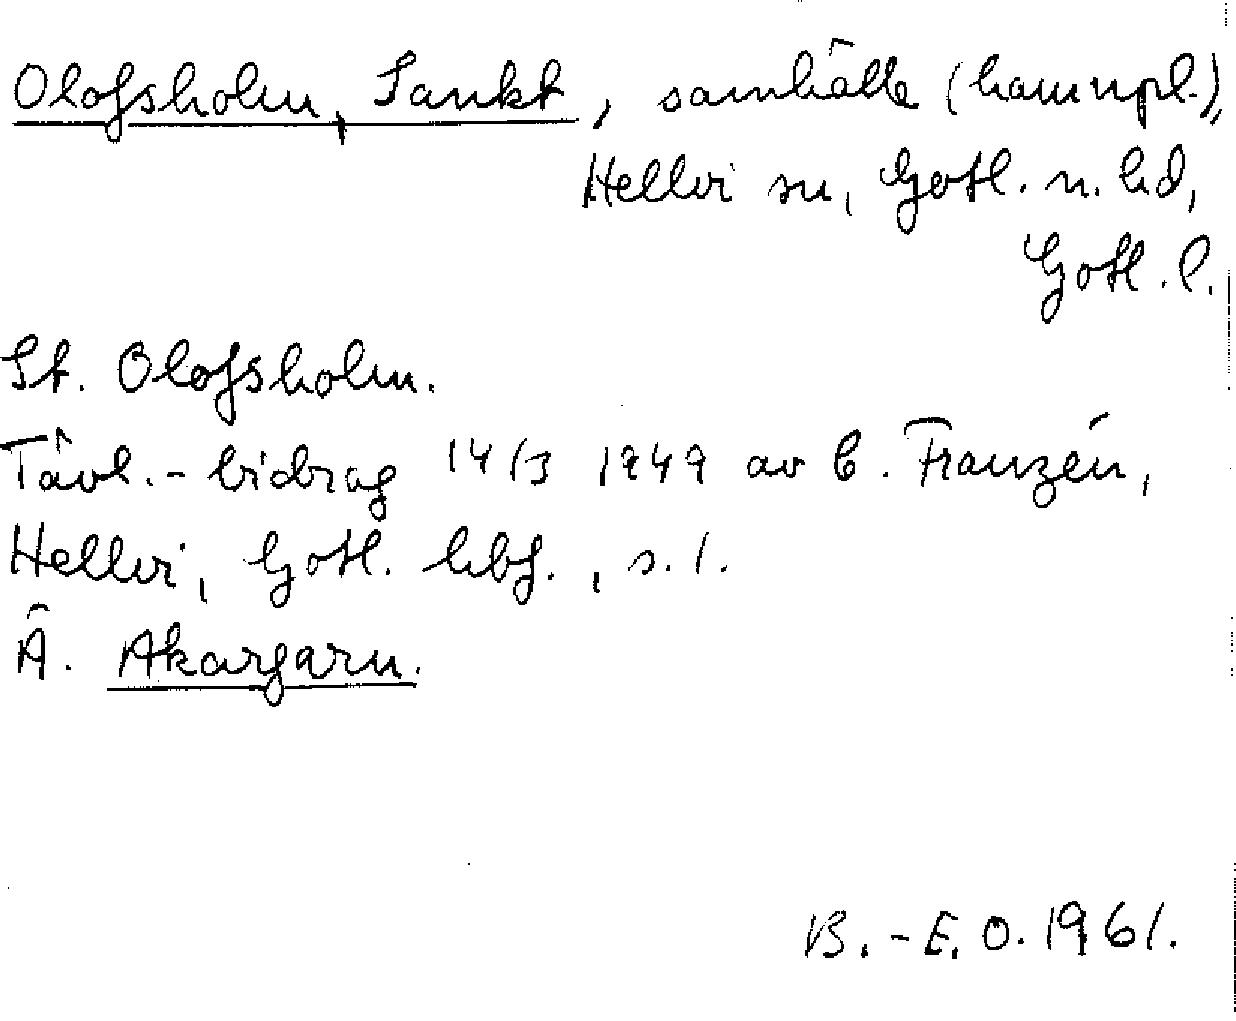 Olofsholm, Sankt, samhälle (hamnpl.),
Hellvi sn, Gotl. n. hd,
Gotl. l.
St. Olofsholm.
Tävl.-bidrag 14/3 1949 av C. Franzén,
Hellvi, Gotl. hbf., s. 1.
Ä. Akargarn.
B.-E. O. 1961.